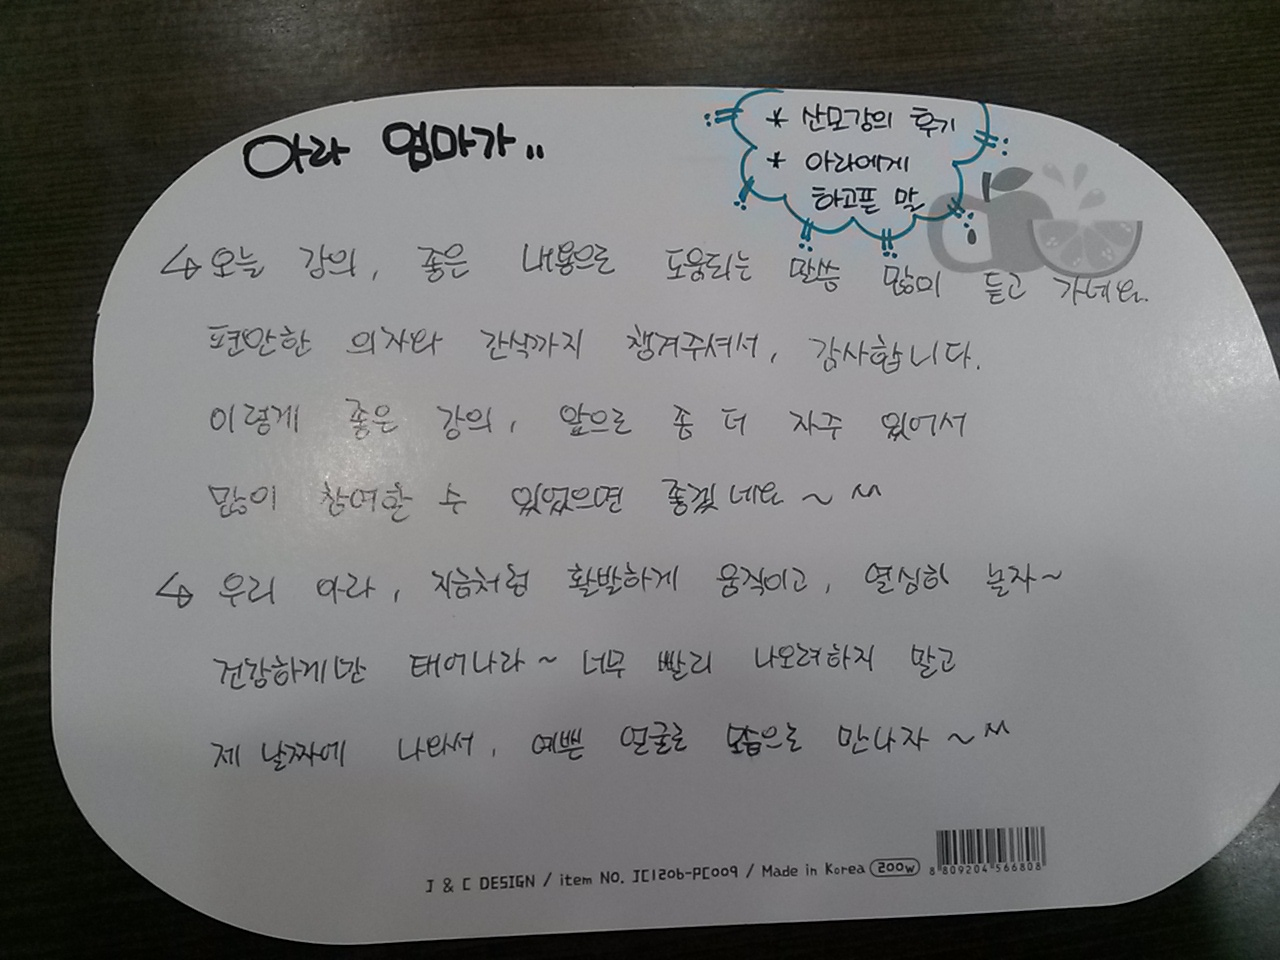 아라 엄마가..
* 산모강의 후기
* 아라에게
하고픈 말
오늘 강의, 좋은 내용으로 도움되는 말씀 많이 듣고 가네요.
편안한 의자와 간식까지 챙겨주셔서, 감사합니다.
이렇게 좋은 강의, 앞으로 좀 더 자주 있어서
많이 참여할 수 있었으면 좋겠네요 ~ ^^
우리 아라, 지금처럼 활발하게 움직이고, 열심히 놀자~
건강하게만 태어나라~ 너무 빨리 나오려하지 말고
제 날짜에 나와서, 예쁜 얼굴로 모습으로 만나자 ~ ^^
J & C DESIGN / item NO. JC1206-PC009 / Made in Korea 200w
8 809204 566808